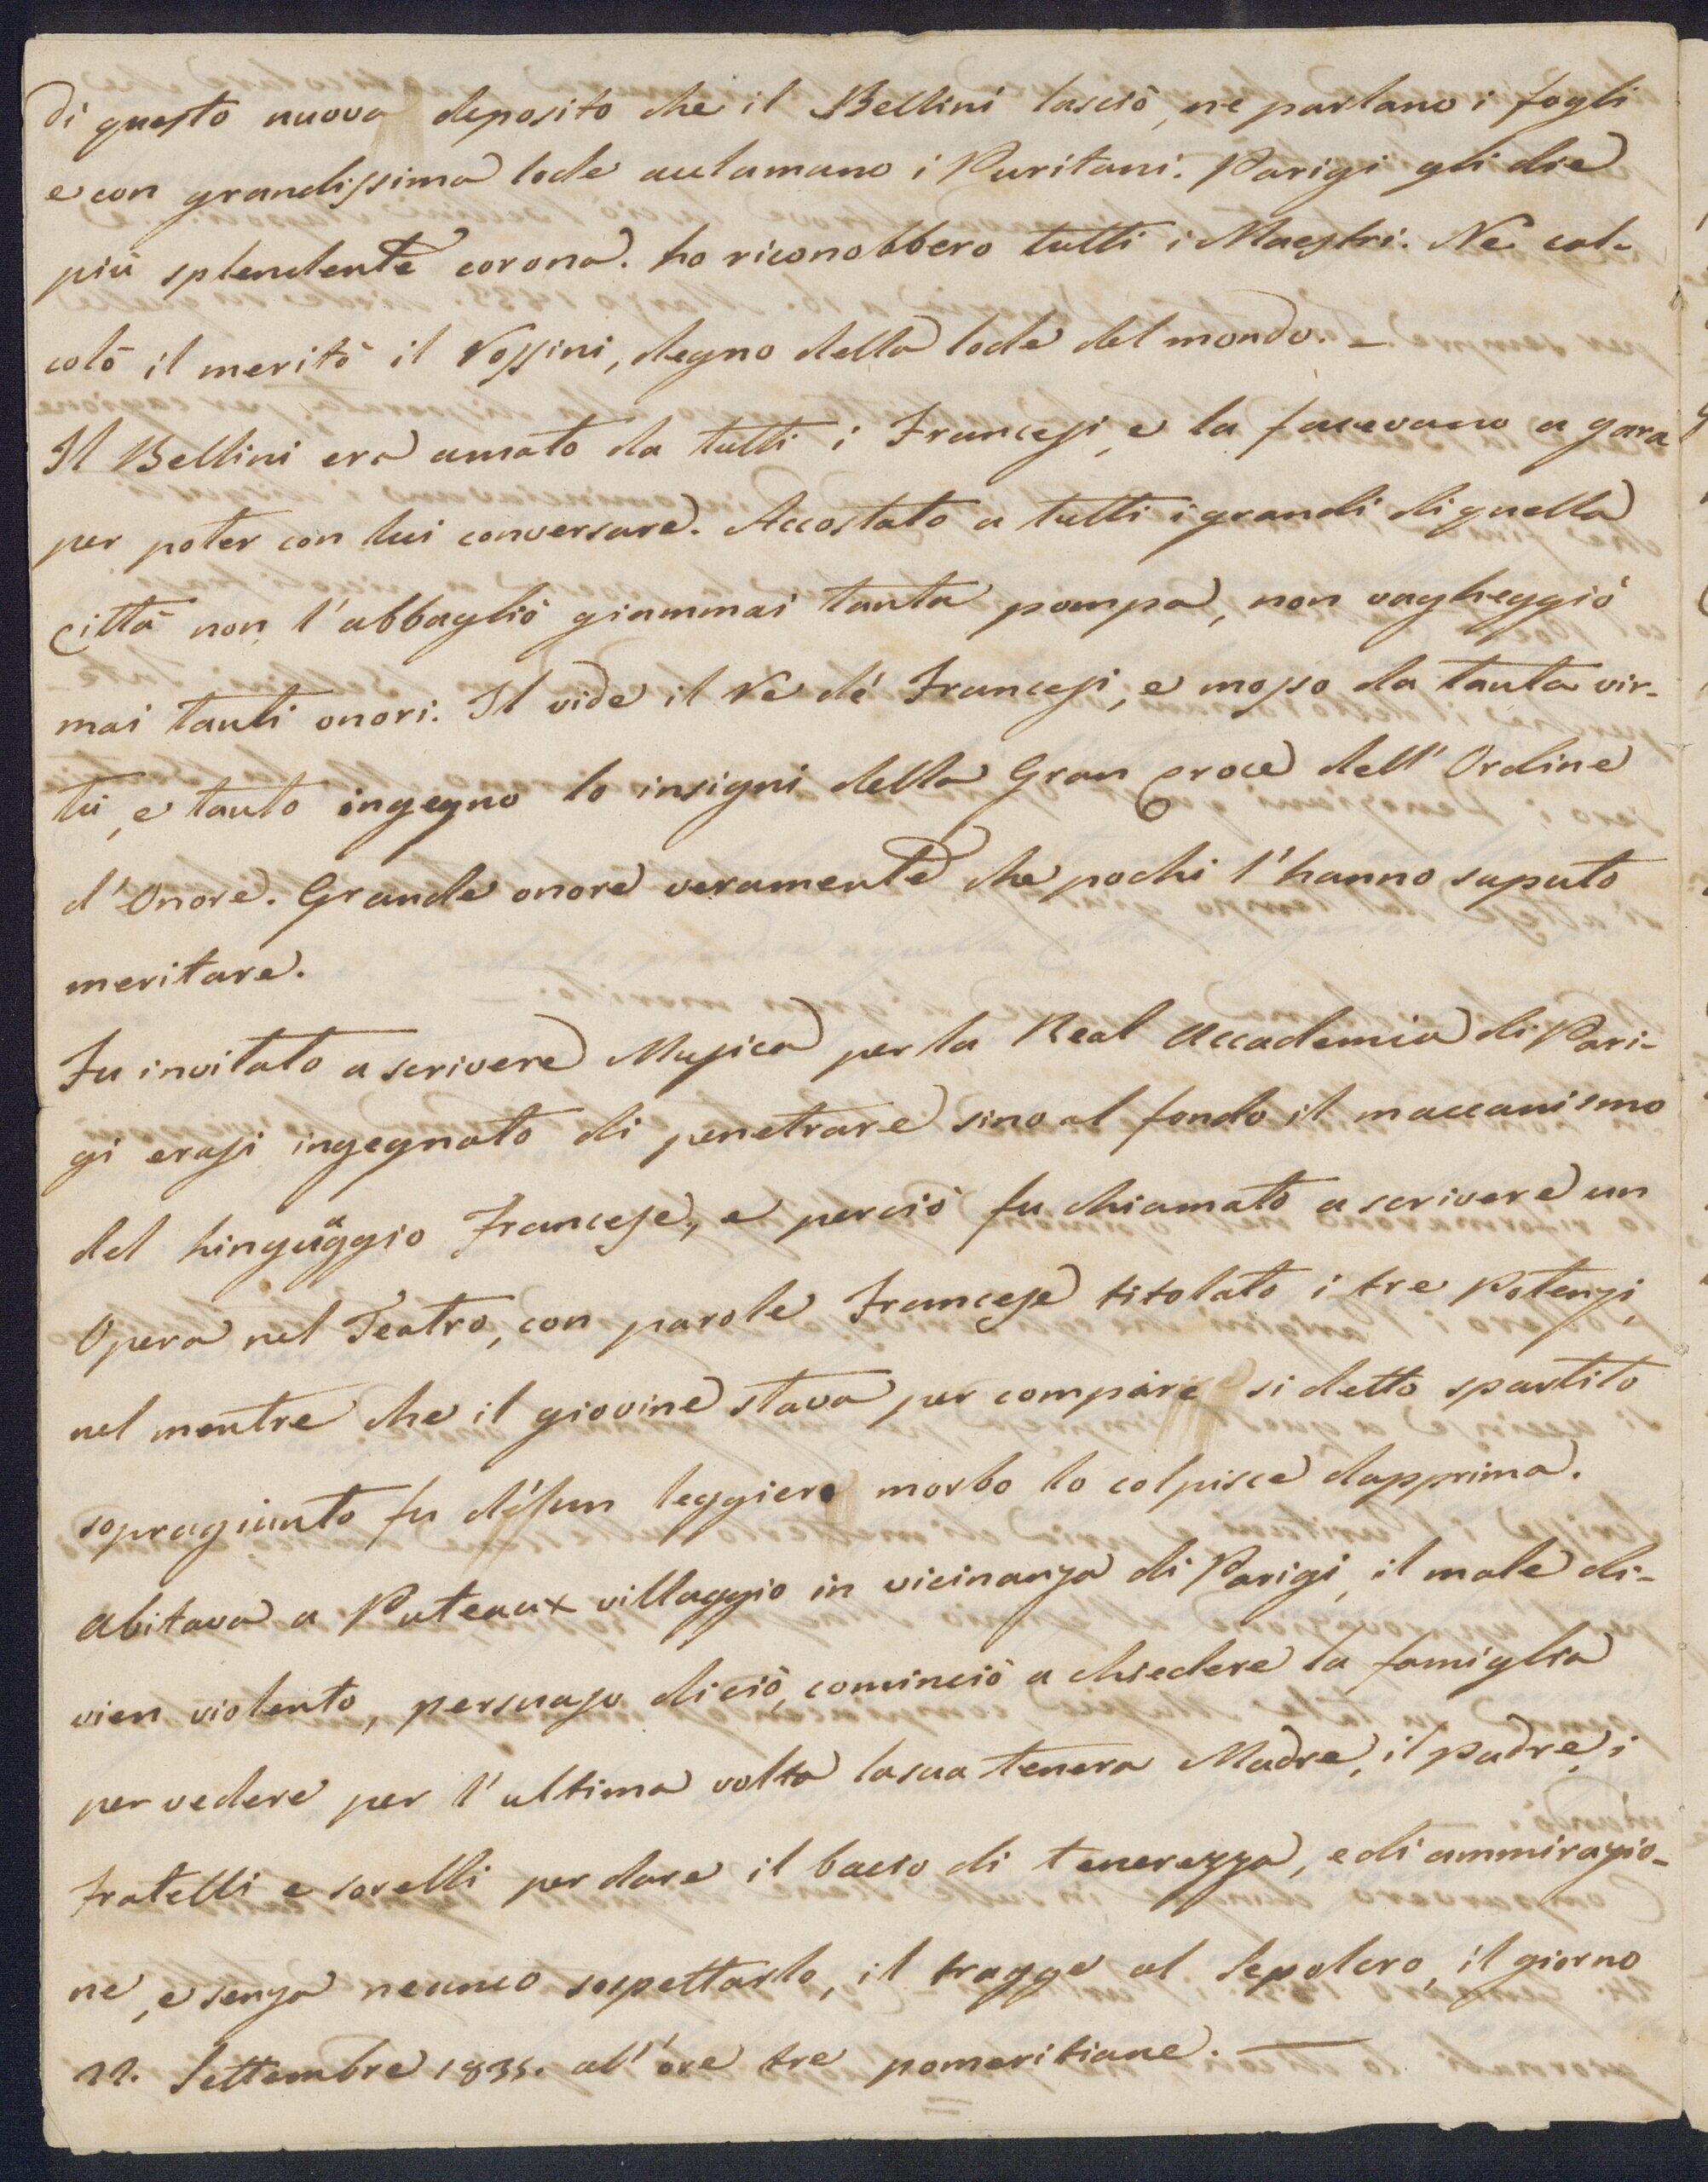 Di questo nuovo deposito che il Bellini lasciò, ne parlano i fogli
e con grandissima lode acclamano i Puritani. Parigi gli die
più splendente corona. Lo riconobbero tutti i Maestri. Ne cal-
colò il meritò il Rossini, degno della lode del mondo. _
Il Bellini era amato da tutti i Francesi, e la facevano a gara
per poter con lui conversare. Accostato a tutti i grandi di quella
Città non l'abbagliò giammai tanta pompa, non vagheggiò
mai tanti onori. Il vide il Re dé Francesi, e mosso da tanta vir-
tù, e tanto ingegno lo insigni della Gran Croce dell'Ordine
d'Onore. Grande onore veramente che pochi l'hanno saputo
meritare.
Fu invitato a scrivere Musica per la Real Accademia di Pari-
gi erasi ingegnato di penetrare sino al fondo il maccanismo
del Linguaggio Francese, e perciò fu chiamato a scrivere un
Opera nel Teatro, con parole Francese titolato i tre Potenzi,
nel mentre che il giovine stava per compire si detto spartito
sopragiunto fu da un leggiero morbo lo colpisce dapprima.
Abitava a Puteaux villaggio in vicinanza di Parigi, il male di-
vien violento, persuaso di ciò, cominciò a chiedere la famiglia
per vedere per l'ultima volta la sua tenera Madre, il padre, i
fratelli e sorelli per dare il bacio di tenerezza, e di ammirazio-
ne, e senza neanco sospettarlo, il tragge al Sepolcro, il giorno
22. Settembre 1835. all'ore tre pomeritiane. —